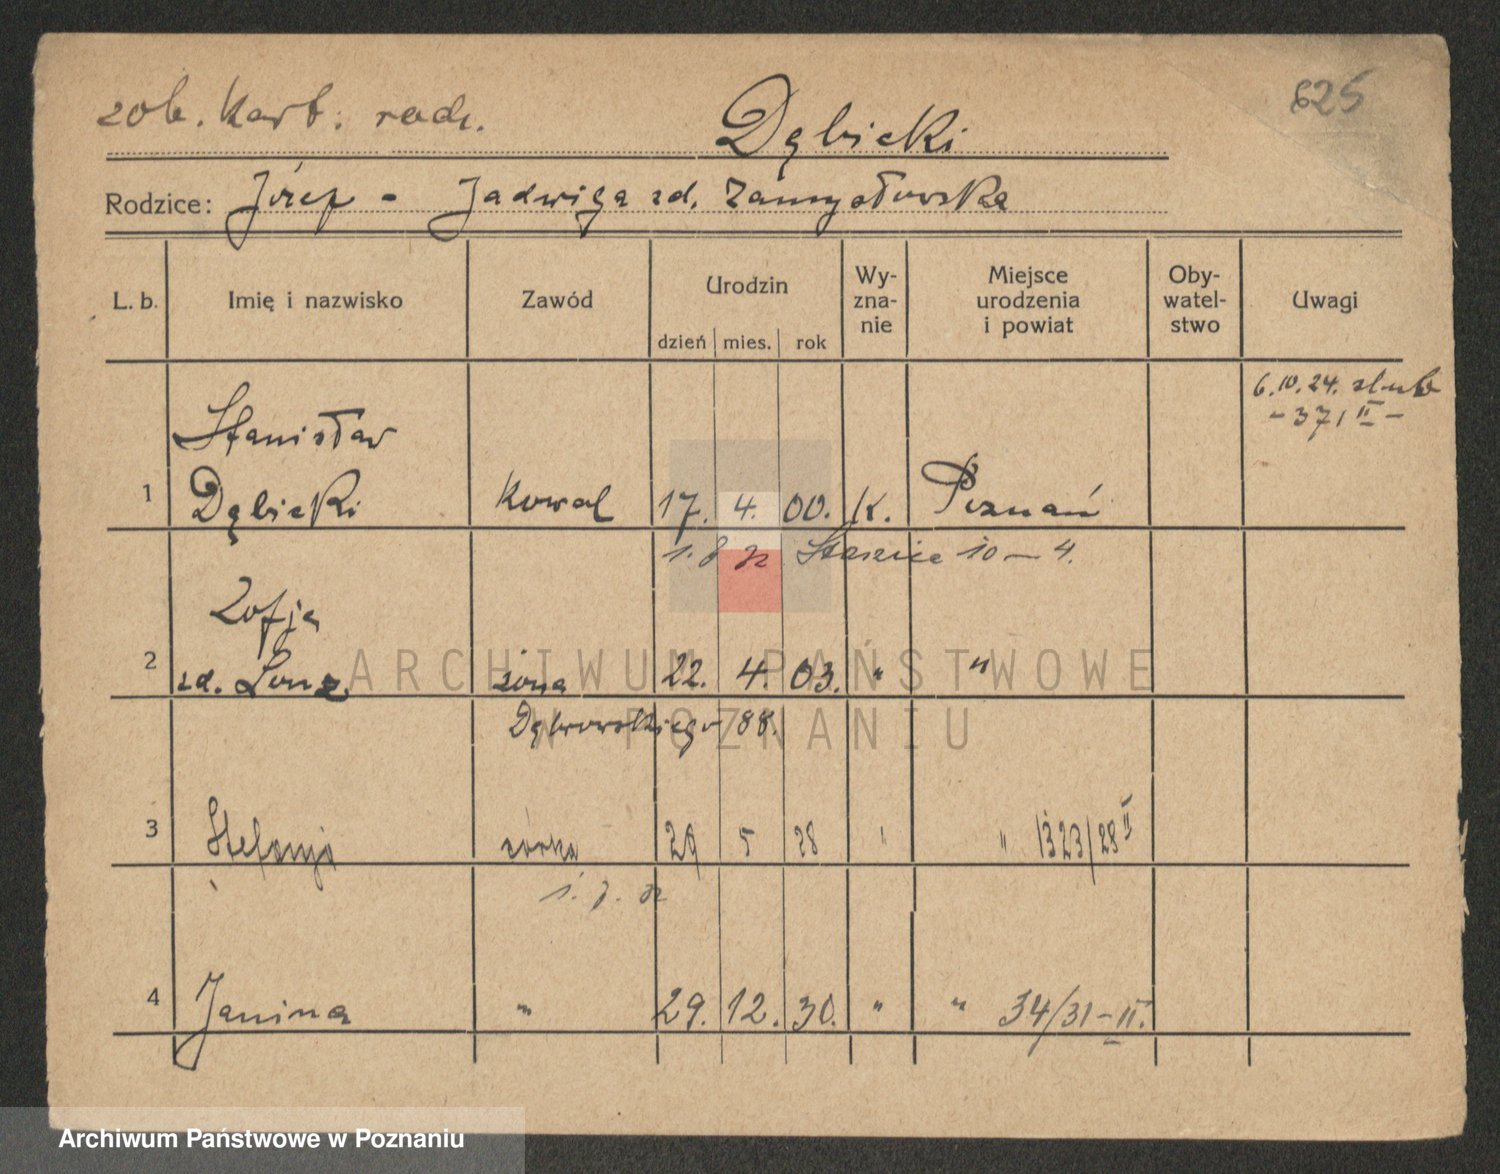 zob. kart. rodz.
Dębicki
625
Rodzice: Józef - Jadwiga zd. Zamysłowska
L. b.
Imię i nazwisko
Zawód
Urodzin
dzień mies. rok
Wy-
zna-
nie
Miejsce
urodzenia
i powiat
Oby-
watel-
stwo
Uwagi
6.10.24. ślub
-371 II-
Stanisław
1 Dębicki Kowal 17. 4. 00. K. Poznań
1. 8 32 Staszica 10 - 4.
Zofja
2 zd. Lonz. żona 22. 4. 03. " "
Dąbrowskiego 88.
3 Stefanja córka 29 5 28 " " 1323/28 II
4 Janina " 29. 12. 30. " " 34/31-II.
ARCHIWUM PAŃSTWOWE
W POZNANIU
Archiwum Państwowe w Poznaniu